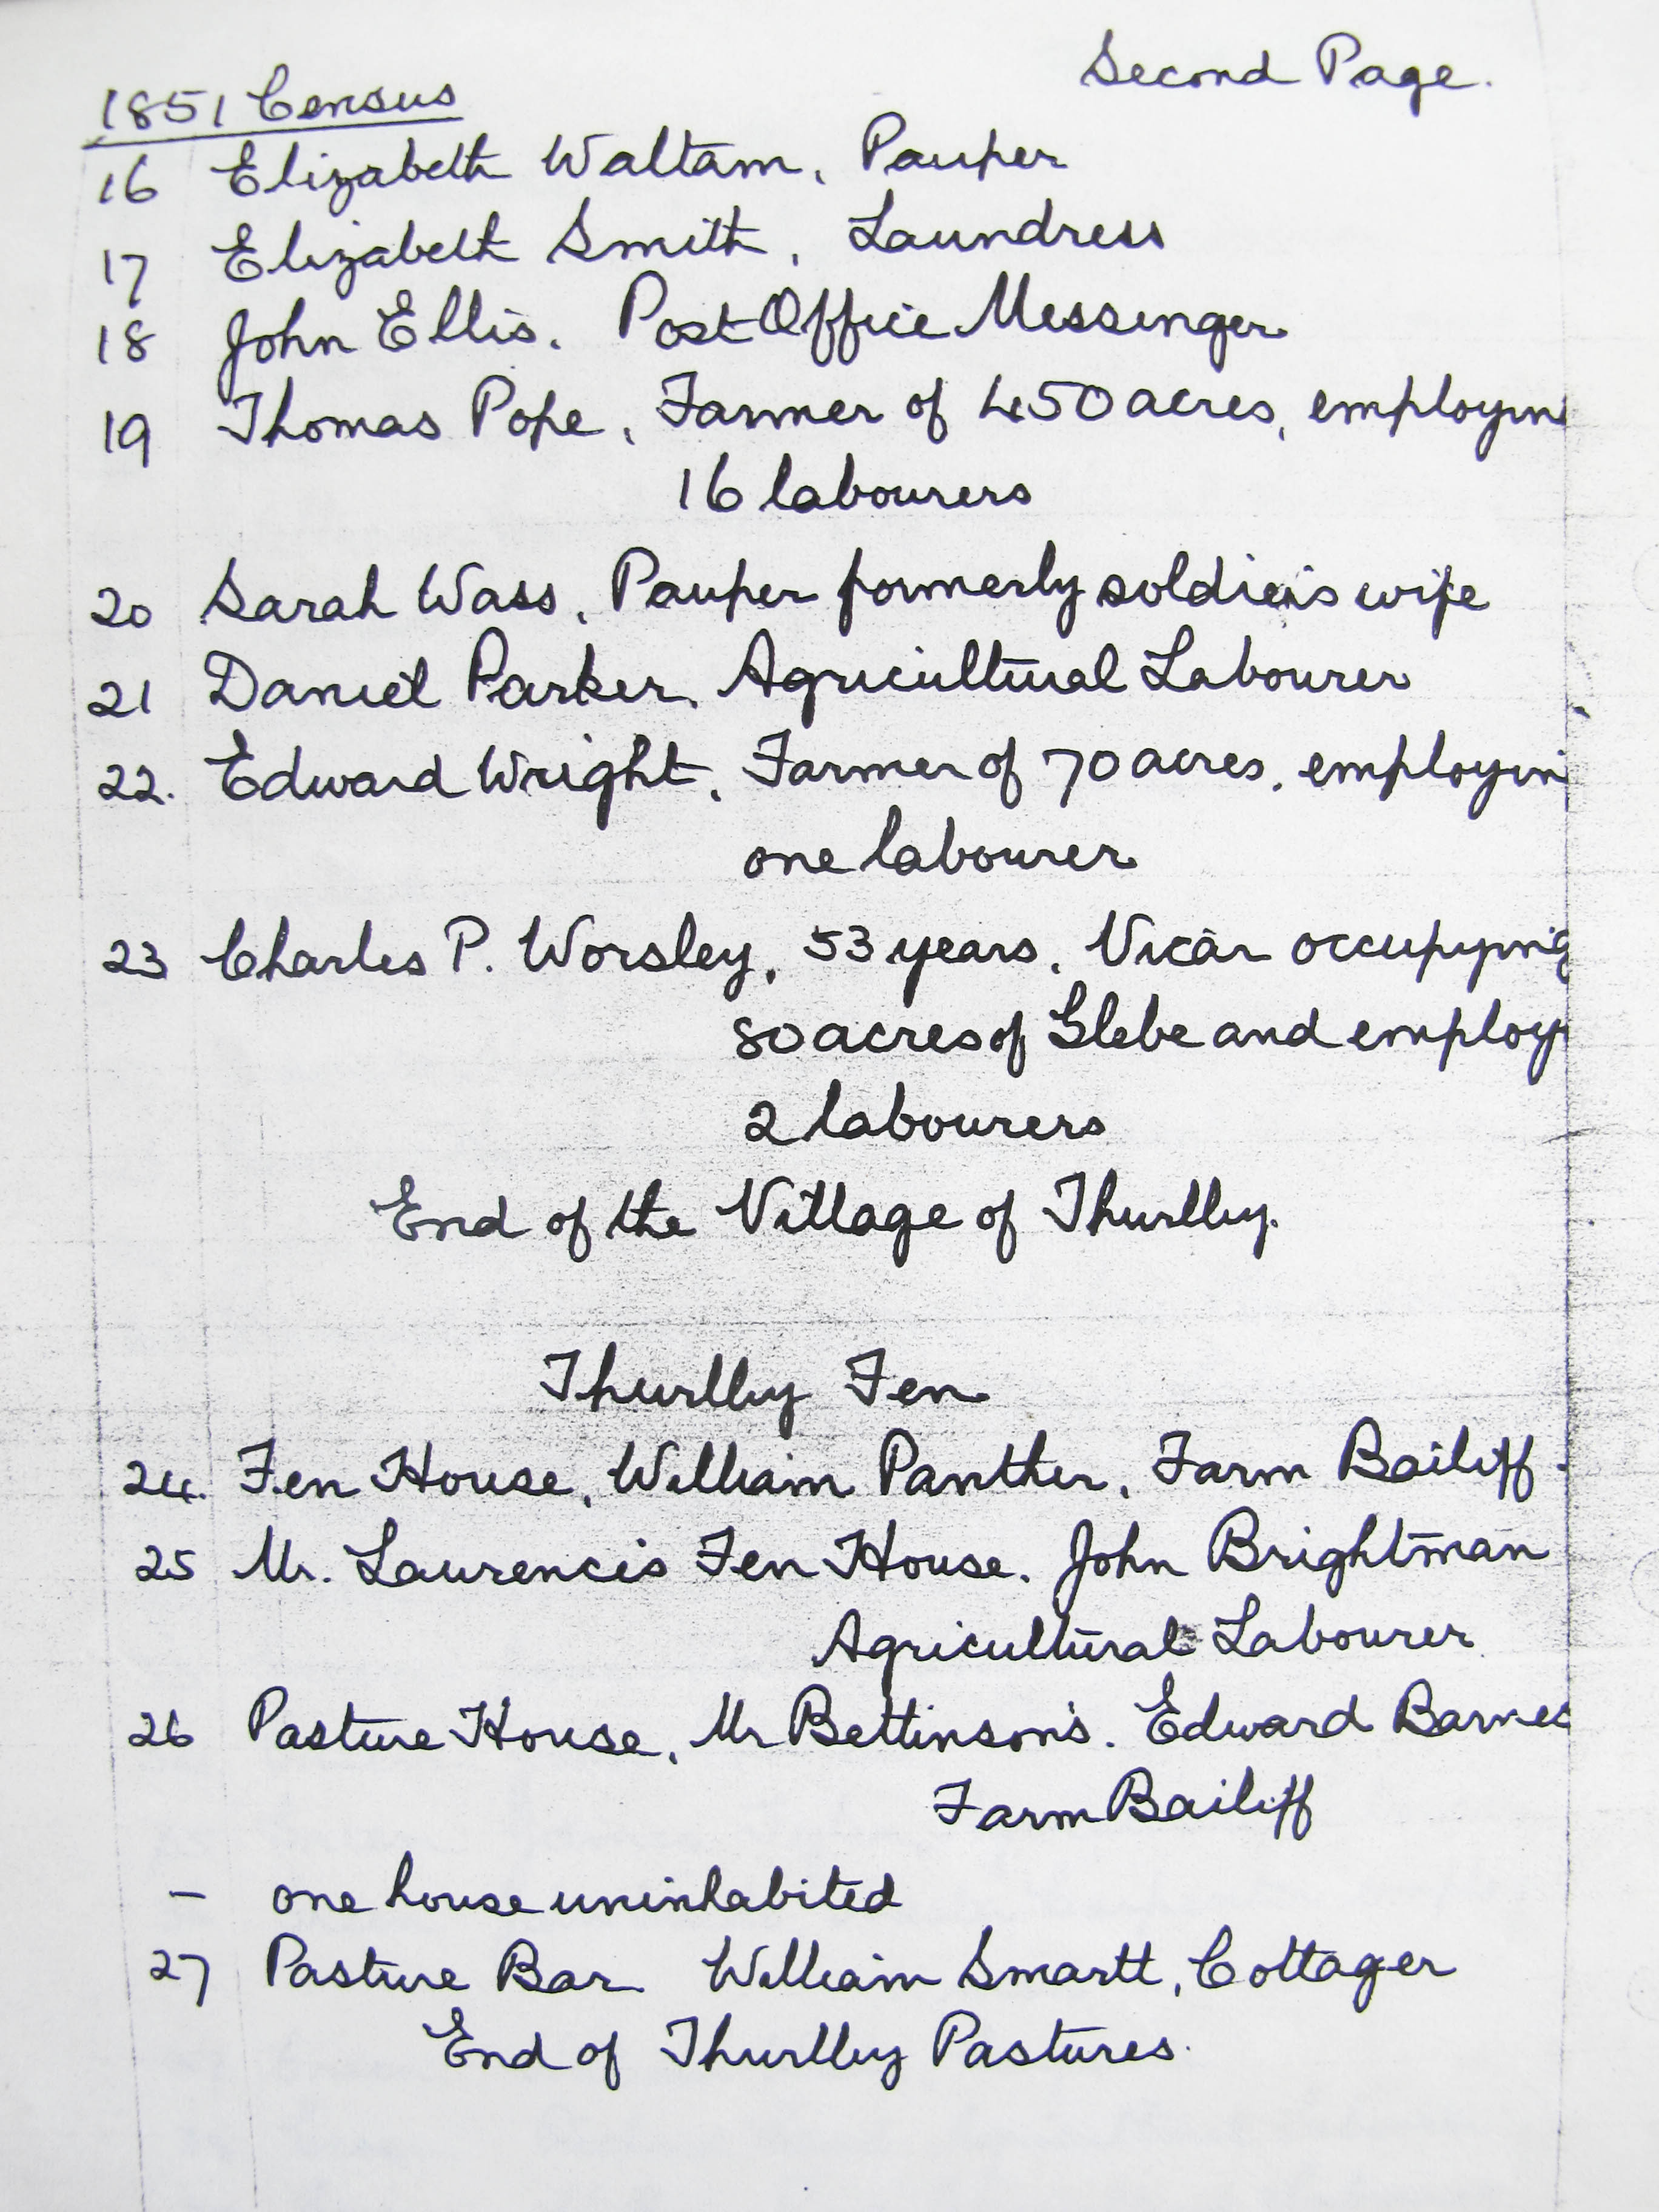 Second Page.
1851 Census
16 Elizabeth Waltam, Pauper
17 Elizabeth Smith, Laundress
18 John Ellis. Post Office Messenger
19 Thomas Pope, Farmer of 450 acres, employin
16 labourers
20 Sarah Wass, Pauper formerly soldier's wife
21 Daniel Parker, Agricultural Labourer
22. Edward Wright, Farmer of 70 acres, employin
one labourer
23 Charles P. Worsley, 53 years, Vicar occupying
80 acres of Glebe and employ
2 labourers
End of the Village of Thurlby.
Thurlby Fen
24. Fen House, William Panther, Farm Bailiff.
25 Mr. Laurence's Fen House. John Brightman
Agricultural Labourer
26 Pasture House, Mr Bettinson's. Edward Barnes
Farm Bailiff
- one house uninhabited
27 Pasture Bar William Smartt, Cottager
End of Thurlby Pastures.